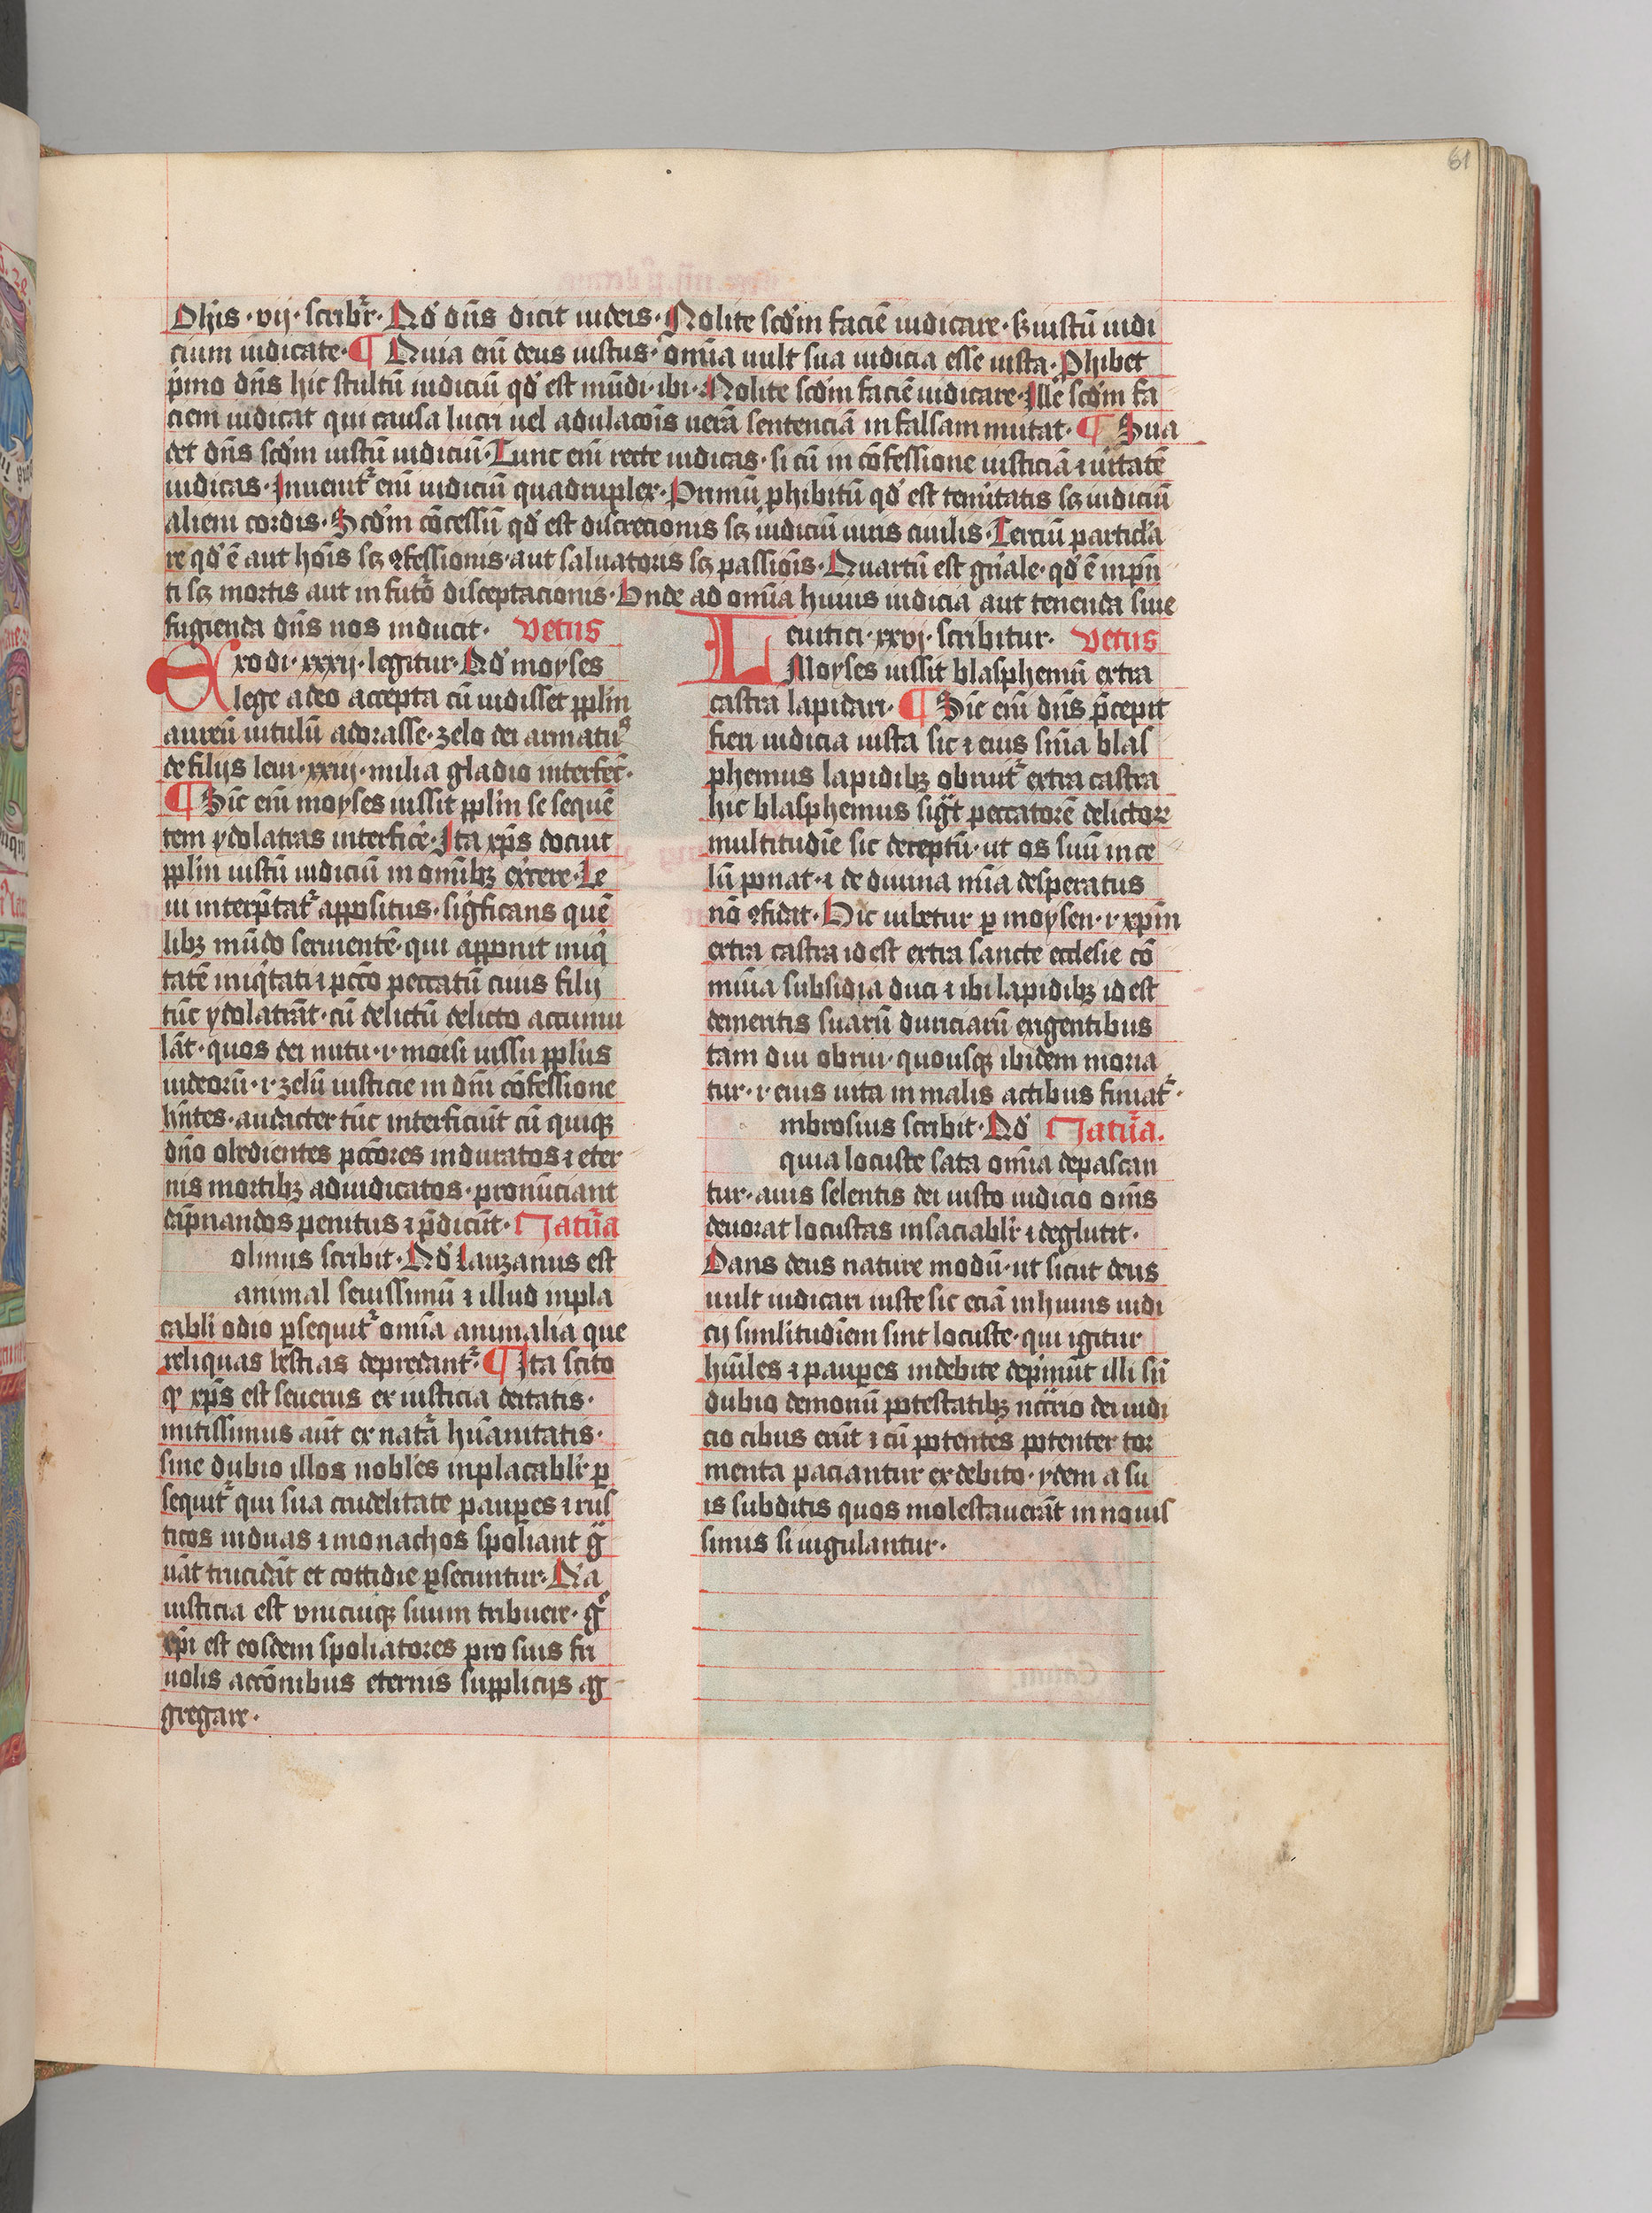 61
Ohis · vij · scribr̄ · Qd' dn̄s dicit iudeis · Nolite scd'm faciē iudicare · sʒ iustū iudi
cium iudicate · ¶ Quia em̄ deus iustus · om̄ia uult sua iudicia esse iusta · Phibet
pimo dn̄s hic stultū iudiciū qd' est mūdi · ibi · Nolite scd'm faciē iudicare · Ille scd'm fa
ciem iudicat qui causa lucri uel adulacōis uerā sentenciā in falsam mutat · ¶ Sua
det dn̄s scd'm iustū iudiciū · Tunc em̄ recte iudicas · si cū in cōfessione iusticiā ⁊ ūitatē
iudicas · Inuenit᷑ em̄ iudiciū quadruplex · Primū ꝓhibitū qd' est temitatis scʒ iudiciū
alieni cordis · Scd'm cōcessū qd' est discrecionis scʒ iudiciū iuris ciuilis · Terciū particla
re qd' ē aut hoīs scʒ ꝯfessionis · aut saluatoris scʒ passiōis · Quartū est gn̄ale · qd' ē inpn̄
ti scʒ mortis aut in futō disceptacionis · Unde ad om̄ia huius iudicia aut tenenda siue
fugienda dn̄s nos inducit · Vetus
Exodi · xxxij · legitur · Qd' moyses
lege a deo accepta cū uidisset pplm̄
aureū uitulū adorasse · zelo dei armatuꝰ
de filijs leui · xxiij · milia gladio interfec̄ ·
¶ Sic em̄ moyses iussit pplm̄ se sequē
tem ydolatras interfice · Ita xp̄s docuit
pplm̄ iustū iudiciū in om̄ibʒ ex'cere · Le
ui interp̄tat᷑ appositus · sig'ficans quē
libʒ mūdo seruientē · qui apponit miq'
tatē iniq'tati ⁊ pctō peccatū cuius filij
tūc ydolatrāt · cū delictū delicto accumu
lāt · quos dei nutu · ⁊ moisi iussu ppl's
iudeorū · ⁊ · zelū iusticie in dn̄i cōfessione
hn̄tes · audacter tūc interficiūt cū quiqʒ
dn̄o obedientes pctōres induratos ⁊ eter
nis mortibʒ adiudicatos · pronūciant
dāpnandos penitus ⁊ p̄dicūt · Natūra
olinus scribit · Qd' Lauzanus est
animal seuissimū ⁊ illud inpla
cabli odio ꝑsequit᷑ om̄ia animalia que
reliquas bestias depredant᷑ · ¶ Ita scito
ꝙ xp̄s est seuerus ex iusticia deitatis ·
mitissimus aūt ex natā hūanitatis ·
sine dubio illos nobles inplacablr̄ ꝑ
sequit᷑ qui sua crudelitate pauꝑes ⁊ rus
ticos uiduas ⁊ monachos spoliant g̃
uāt trucidāt et cottidie ꝑsecuntur · Na
iusticia est vnicuiqʒ suum tribuere · g°
xp̄i est eosdem spoliatores pro suis fri
uolis accōnibus eternis supplicijs ag
gregare ·
Leuitici · xxvj · scribitur · Vetus
Moyses iussit blasphemū extra
castra lapidari · ¶ Sic em̄ dn̄s p̄cepit
fieri iudicia iusta sic ⁊ eius sn̄ia blas
phemus lapidibʒ obruit᷑ extra castra
hic blasphemus sig̃t peccatorē delictoꝝ
multitudīe sic deceptū · ut os suū in ce
lū ponat · ⁊ de diuina mīa desperatus
nō ꝯfidat · Hic iubetur ꝑ moysen · ⁊ xp̄m
extra castra id est extra sancte ecclesie cō
mūia subsidia duci ⁊ ibi lapidibʒ id est
dementis suarū duriciarū exigentibus
tam diu obrui · quousqʒ ibidem moria
tur · ⁊ eius uita in malis actibus finiat᷑ ·
mbrosius scribit · Qd' Natūra ·
quia locuste sata om̄ia depascan
tur · auis selentis dei iusto iudicio om̄s
deuorat locustas insaciablr̄ ⁊ deglutit ·
Dans deus nature modū · ut sicut deus
uult iudicari iuste sic eciā in huius iudi
cij simlitudīem sint locuste · qui igitur
hūiles ⁊ pauꝑes indebite dep̄mūt illi sn̄
dubio demonū potestatibʒ nccīo dei iudi
cio cibus erūt ⁊ cū potentes potenter tor
menta paciantur ex debito · ydem a su
is subditis quos molestauerāt in nouis
simis si iugulantur ·